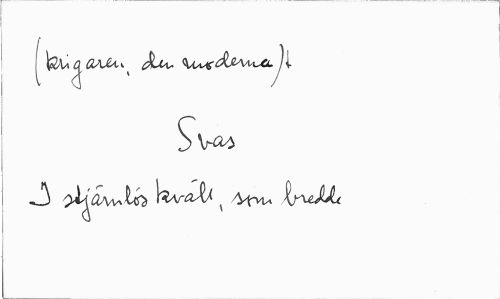 (krigaren, den moderna)t
Svas
I stjärnlös kväll, som bredde